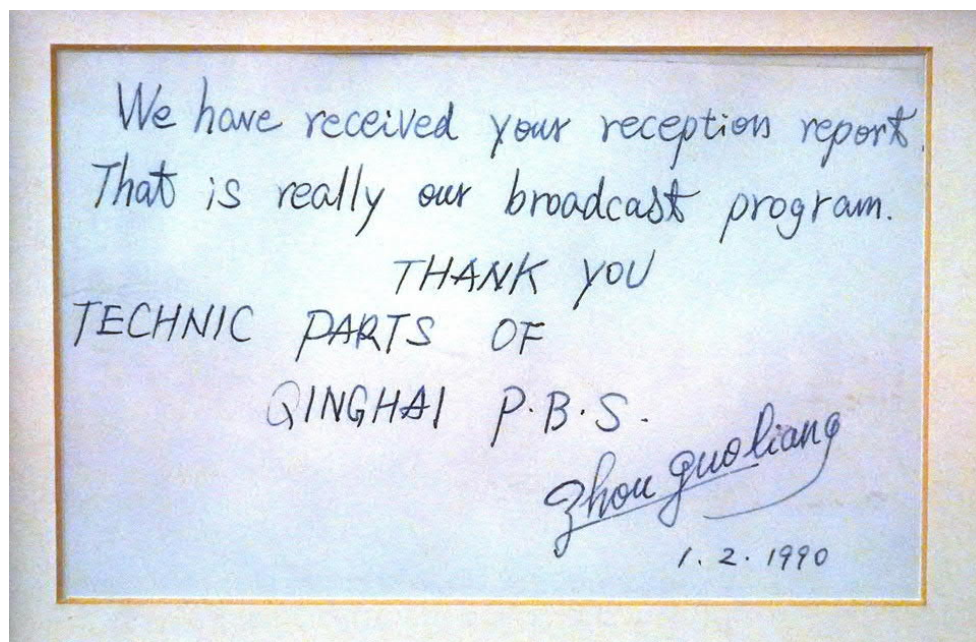 We have received your reception report.
That is really our broadcast program.
THANK YOU
TECHNIC PARTS OF
QINGHAI P.B.S.
Zhou guoliang
1.2.1990